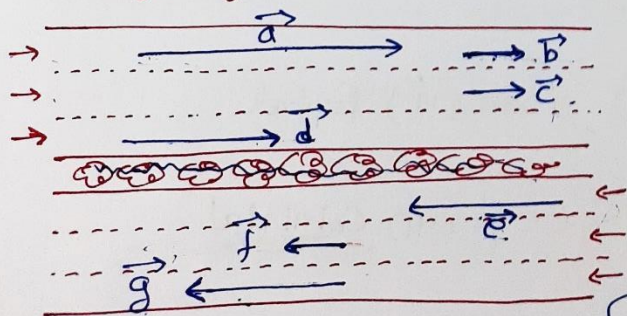 a⃗
b⃗
c⃗
d⃗
e⃗
f⃗
g⃗